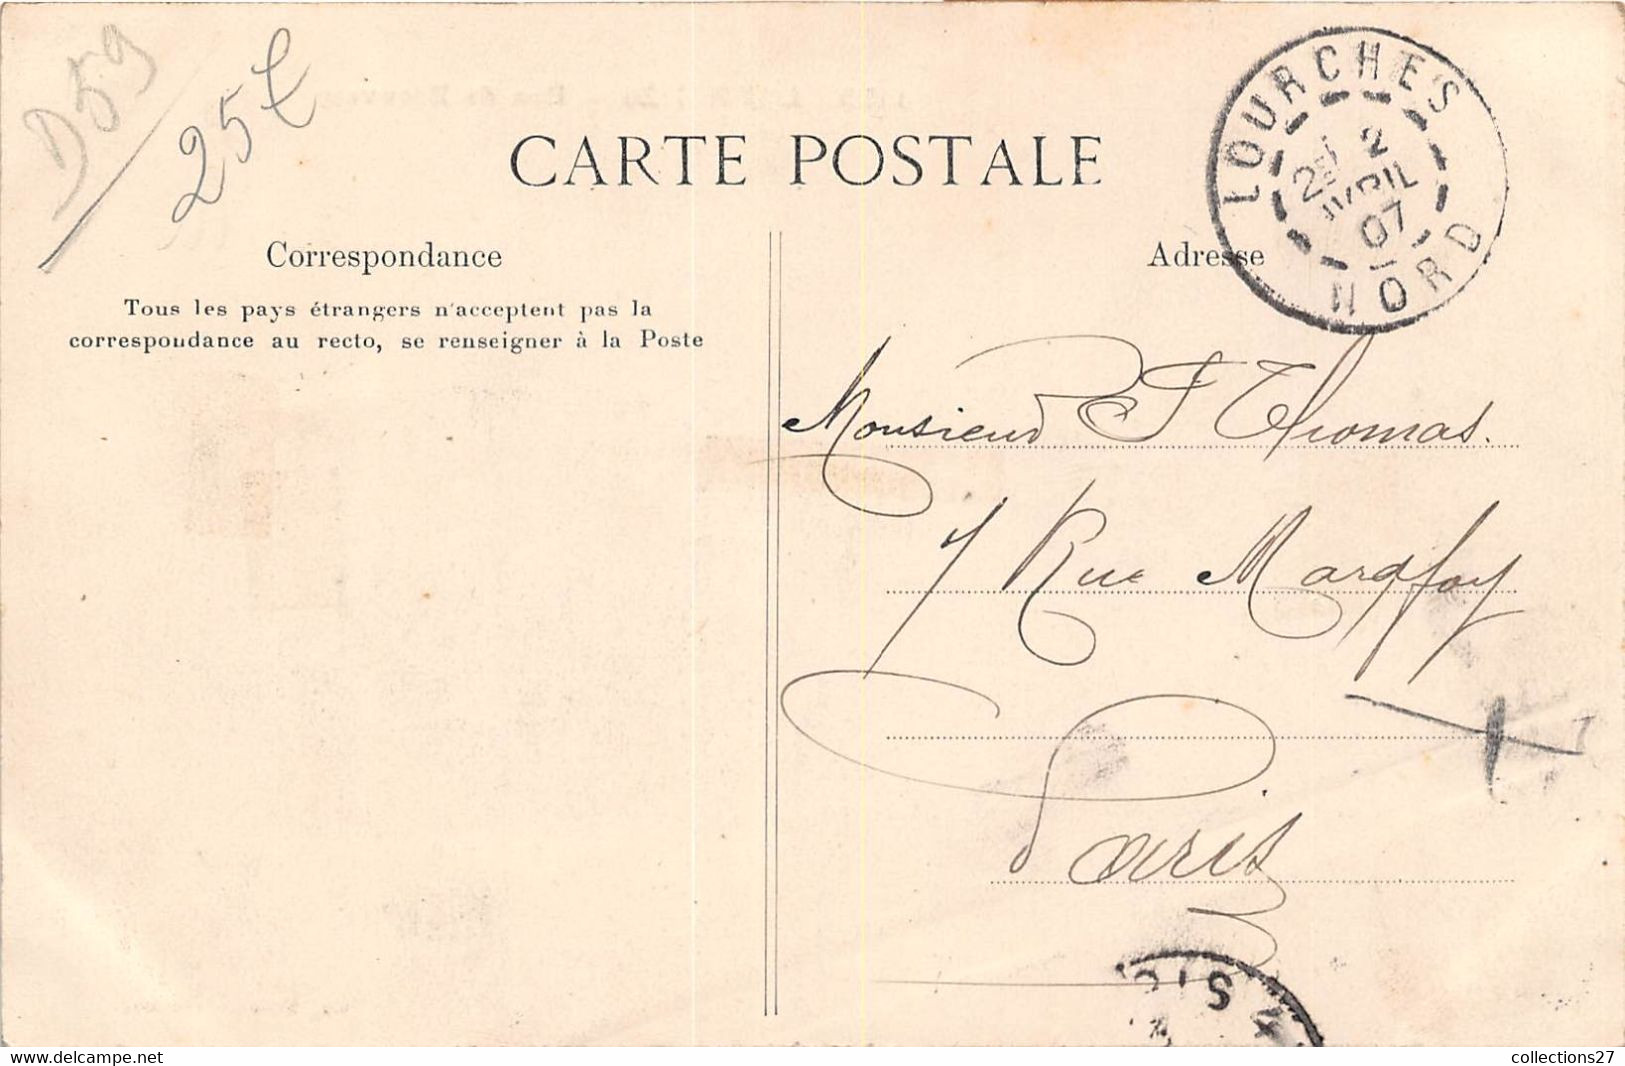 D59
25€
CARTE POSTALE
LOURCHES
2
25 AVRIL
07
NORD
Correspondance
Adresse
Tous les pays étrangers n'acceptent pas la
correspondance au recto, se renseigner à la Poste
Monsieur J Thomas.
7 Rue
Paris
collections27